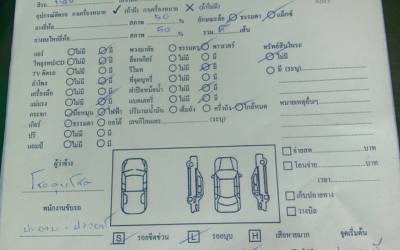 อุปกรณ์ติดรถ กาเครื่องหมาย ✓ (ถ้ามี) กาเครื่องหมาย ✕ (ถ้าไม่มี)
สภาพ 50 ลักษณะล้อ ธรรมดา แม็กซ์
ยางอะไหล่ยี่ห้อ สภาพ 50 รวม 5 เส้น
แอร์ ไม่มี มี พวงมาลัย ธรรมดา พาวเวอร์ ทรัพย์สินในรถ
วิทยุเทป/CD ไม่มี มี ล็อกเกียร์ ไม่มี มี ไม่มี
TV ติดรถ ไม่มี มี รีโมท ไม่มี มี มี (ระบุ)
ลำโพง ไม่มี มี ที่จุดบุหรี่ ไม่มี มี
เครื่องมือ ไม่มี มี ฝาปิดหม้อน้ำ ไม่มี มี
แม่แรง ไม่มี มี แบตเตอรี่ ไม่มี มี (ระบุ)
กระจก มือหมุน ไฟฟ้า ปริมาณน้ำมัน เต็มถัง ครึ่งถัง ใกล้หมด หมายเหตุอื่นๆ
เกียร์ ธรรมดา ออโต้ เลขกิโลเมตร
ปรี ไม่มี มี
แอมป์ ไม่มี มี
ผู้ว่าจ้าง
จ่ายสด บาท
โอนจ่าย บาท
เวลา
พนักงานขับรถ
เก็บปลายทาง
วางบิล
S รอยขีดข่วน L รอยบุบ H เสียหายมาก จุดเริ่มต้น